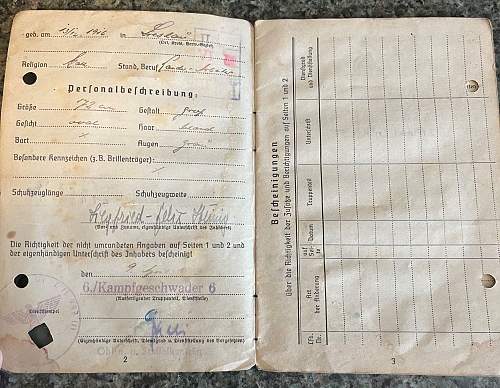 geb. am 1912 in
(Ort, Kreis, Verw.-Bezirk)
Religion Stand, Beruf
Personalbeschreibung:
Größe 172 cm Gestalt groß
Gesicht oval Haar blond
Bart Augen grau
Besondere Kennzeichen (z. B. Brillenträger):
Schuhzeuglänge Schuhzeugweite
Siegfried-
(Vor- und Zuname, eigenhändige Unterschrift des Inhabers)
Die Richtigkeit der nicht umrandeten Angaben auf Seiten 1 und 2 und
der eigenhändigen Unterschrift des Inhabers bescheinigt
den 9.
6./Kampfgeschwader 6
(Ausfertigender Truppenteil, Dienststelle)
Dienststempel
(Eigenhändige Unterschrift, Dienstgrad u. Dienststellung des Vorgesetzten)
2
Bescheinigungen
über die Richtigkeit der Zusätze und Berichtigungen auf Seiten 1 und 2
Lfd. Nr.
Art der Änderung
auf Seite
Datum
Truppenteil
Unterschrift
Dienstgrad und Dienststellung
3